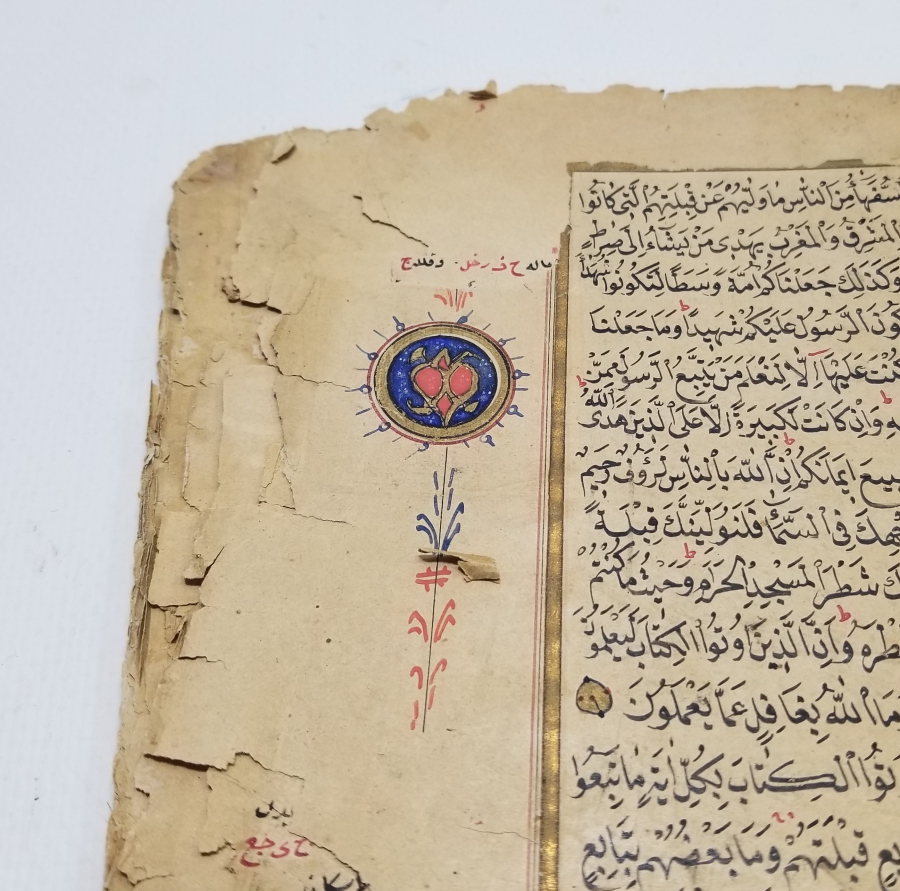 لسُّفَهَاءُ مِنَ النَّاسِ مَا وَلّٰيهُمْ عَنْ قِبْلَتِهِمُ الَّتِي كَانُوا
الْمَشْرِقُ وَالْمَغْرِبُ يَهْدِي مَنْ يَشَاءُ إِلَى صِرَاطٍ
وَكَذٰلِكَ جَعَلْنَاكُمْ أُمَّةً وَسَطًا لِتَكُونُوا شُهَدَاءَ
كُونَ الرَّسُولُ عَلَيْكُمْ شَهِيدًا ط وَمَا جَعَلْنَا
كُنْتَ عَلَيْهَا إِلَّا لِنَعْلَمَ مَنْ يَتَّبِعُ الرَّسُولَ مِمَّنْ
هِ وَإِنْ كَانَتْ لَكَبِيرَةً إِلَّا عَلَى الَّذِينَ هَدَى اللَّهُ
لِيُضِيعَ إِيمَانَكُمْ ط إِنَّ اللَّهَ بِالنَّاسِ لَرَؤُفٌ رَحِيمٌ
جْهِكَ فِي السَّمَاءِ فَلَنُوَلِّيَنَّكَ قِبْلَةً
كَ شَطْرَ الْمَسْجِدِ الْحَرَامِ ط وَحَيْثُ مَا كُنْتُمْ
شَطْرَهُ ط وَإِنَّ الَّذِينَ أُوتُوا الْكِتَابَ لَيَعْلَمُونَ
وَمَا اللَّهُ بِغَافِلٍ عَمَّا يَعْمَلُونَ
أُوتُوا الْكِتَابَ بِكُلِّ اٰيَةٍ مَا تَبِعُوا
بِعٍ قِبْلَتَهُمْ وَمَا بَعْضُهُمْ بِتَابِعٍ